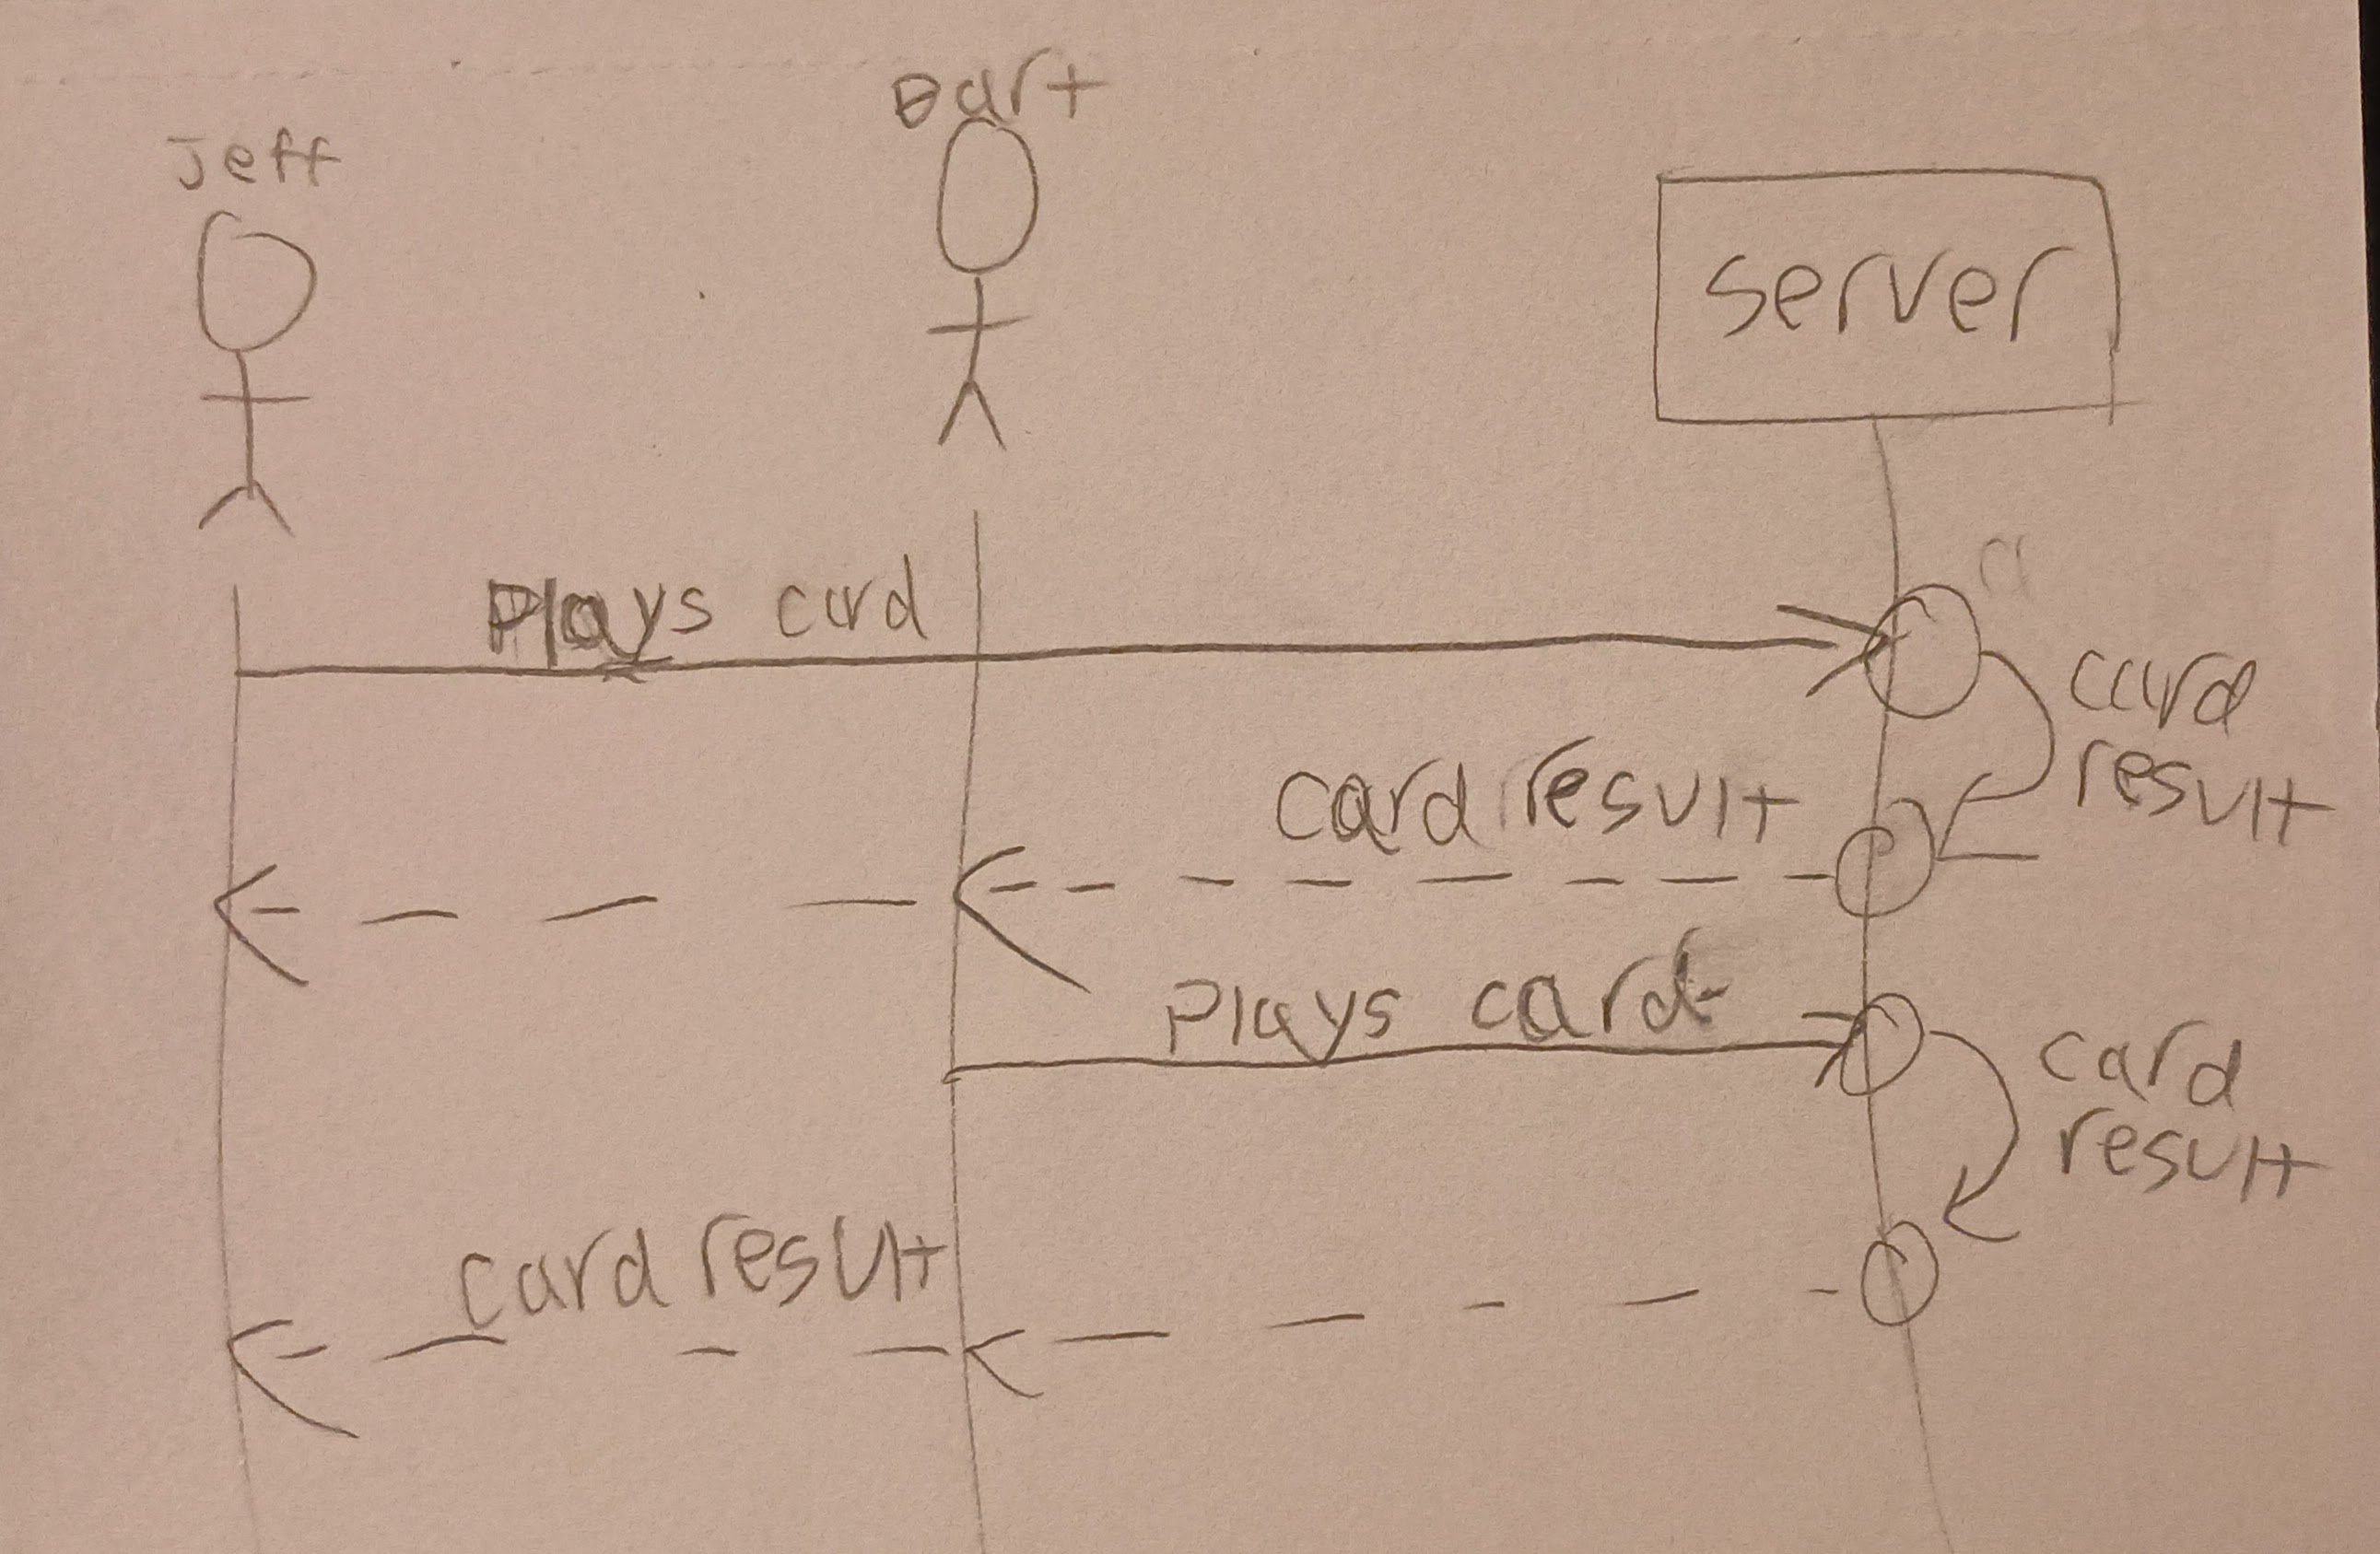 Jeff
Bart
server
Plays card
card
result
card result
Plays card
card
result
card result